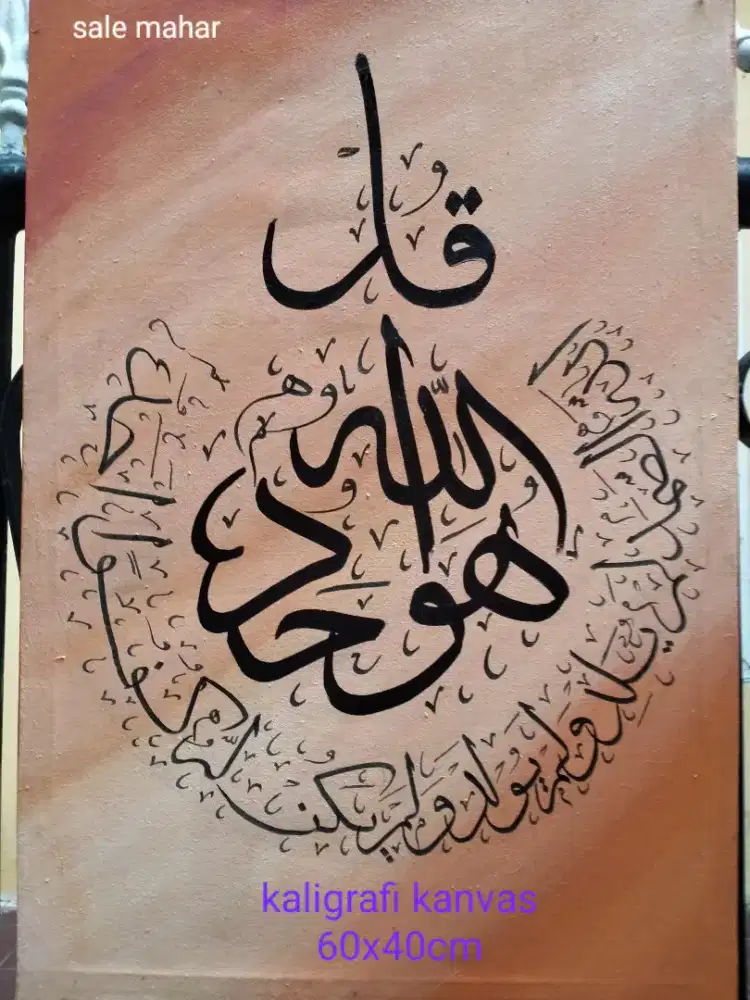 sale mahar
قل
هو الله احد
الله الصمد لم يلد ولم يولد ولم يكن له كفوا احد
kaligrafi kanvas
60x40cm